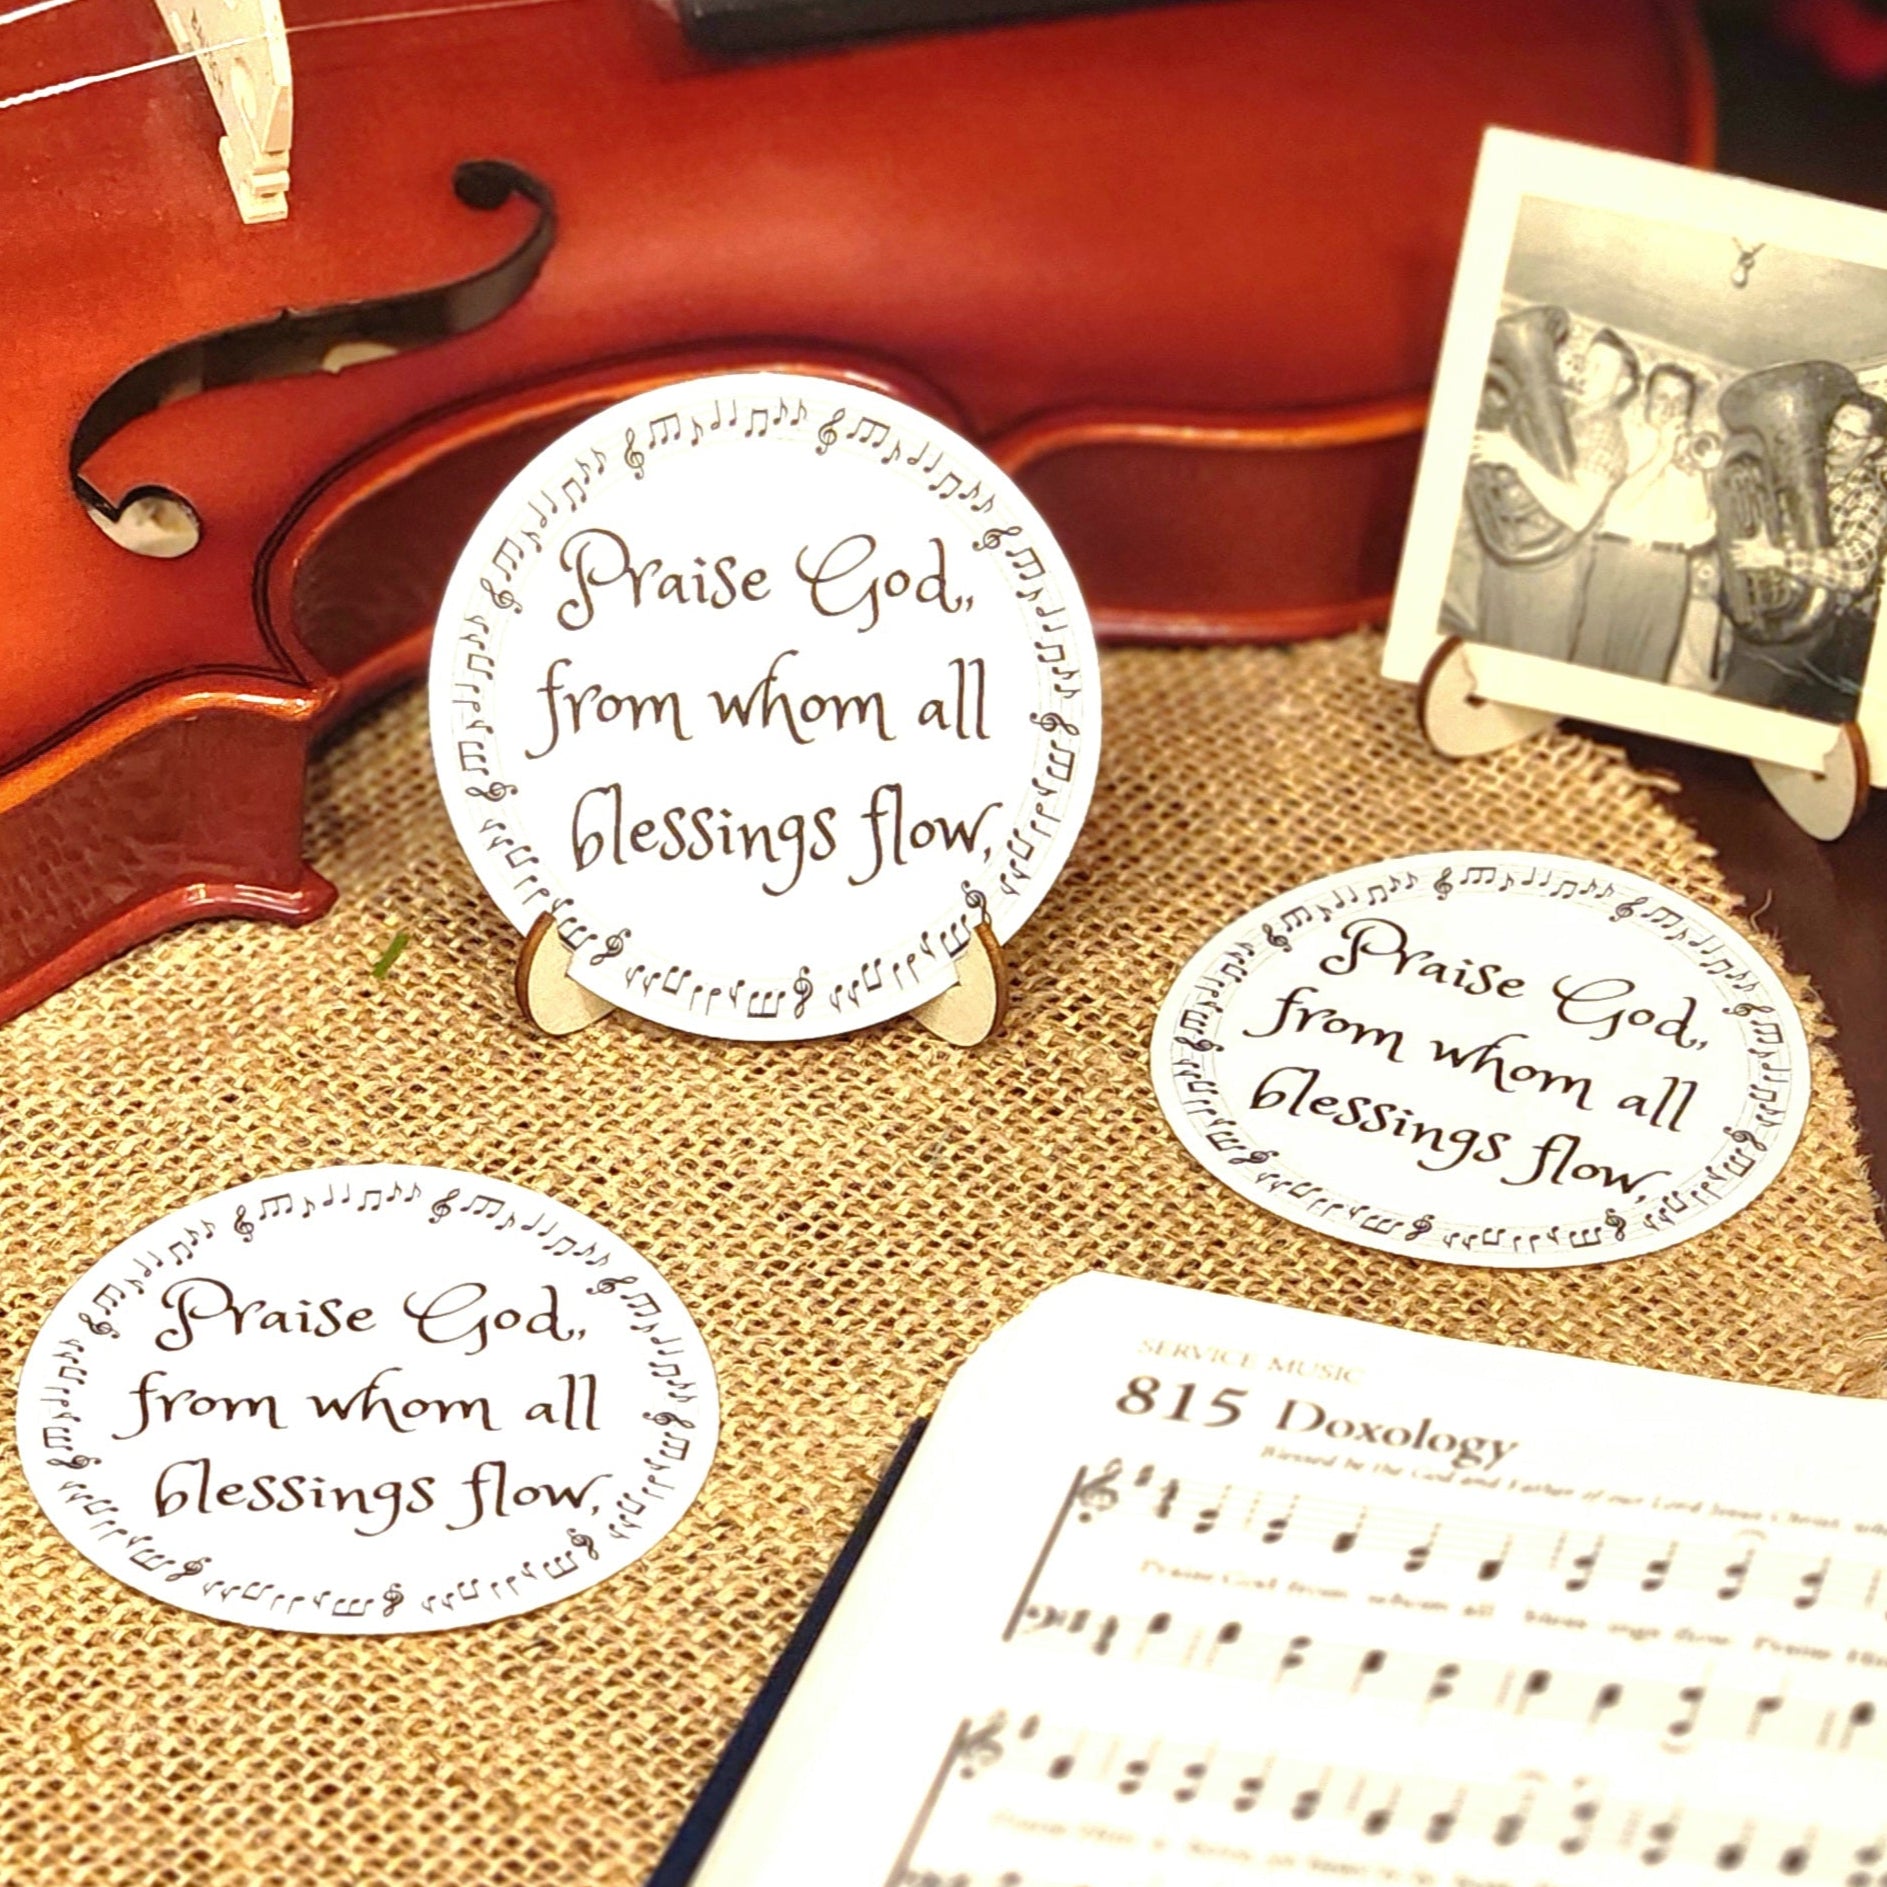 Praise God,,
from whom all
blessings flow,
Praise God,,
from whom all
blessings flow,
Praise God,,
from whom all
blessings flow,
SERVICE MUSIC
815 Doxology
Blessed be the God and Father of our Lord Jesus Christ, who
Praise God from whom all bless ings flow Praise Him